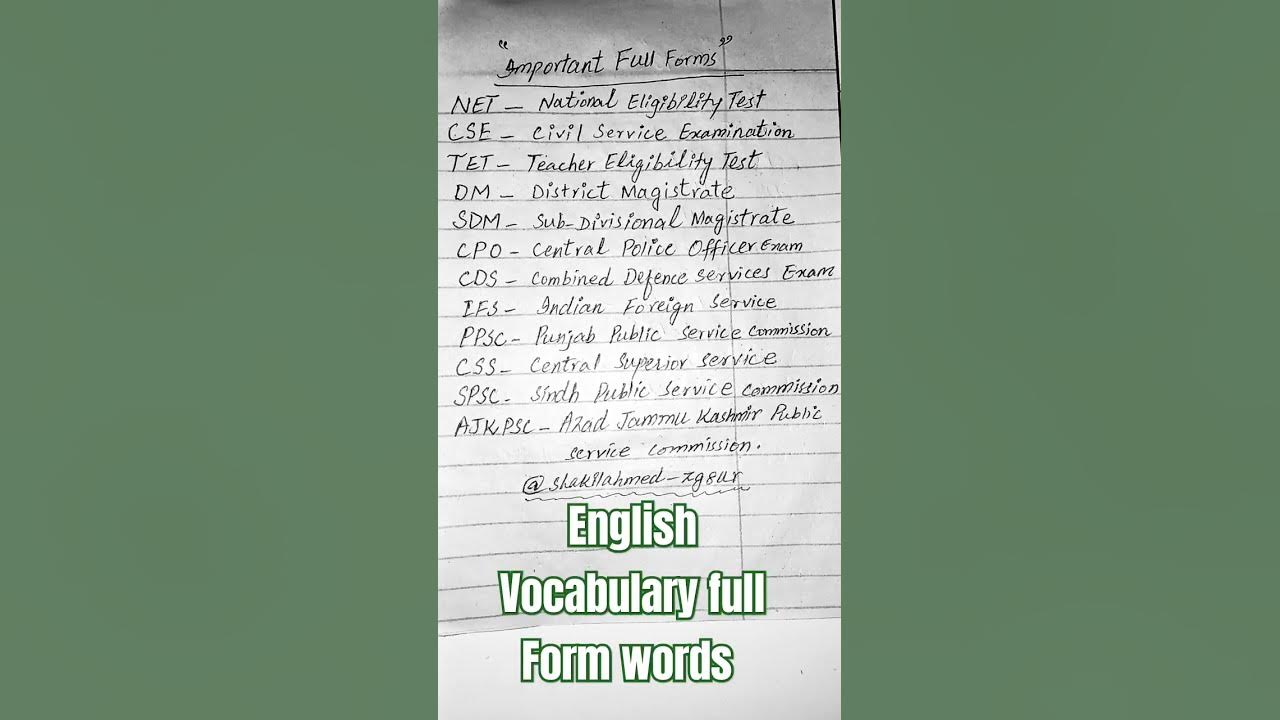 "Important Full Forms"
NET - National Eligibility Test
CSE - Civil Service Examination
TET - Teacher Eligibility Test
DM - District Magistrate
SDM - Sub-Divisional Magistrate
CPO - Central Police Officer Exam
CDS - Combined Defence Services Exam
IFS - Indian Foreign Service
PPSC - Punjab Public Service Commission
CSS - Central Superior Service
SPSC - Sindh Public Service Commission
AJK,PSC - Azad Jammu Kashmir Public
Service Commission.
@shakilahmed-xg8ur
English
Vocabulary full
Form words